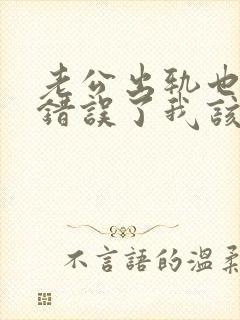 老公出軌也
錯誤了我該
不言語的溫柔